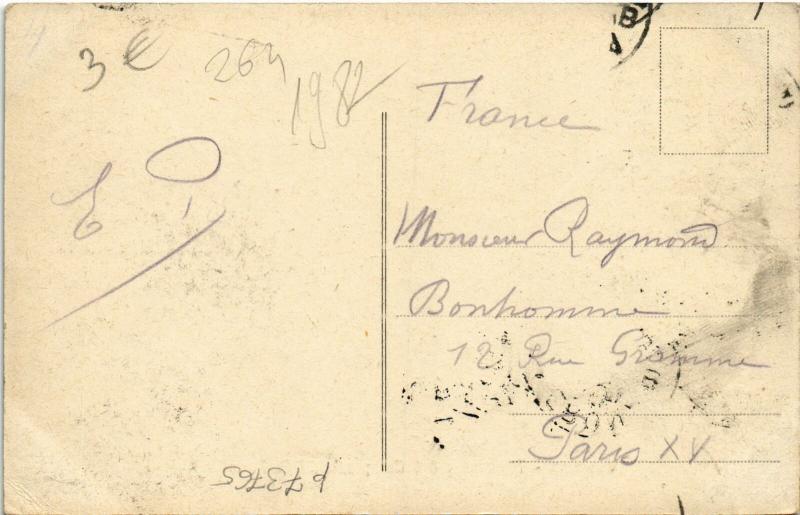 3 €
264
1982
E P
France
Monsieur Raymond
Bonhomme
12 Rue Gramme
Paris XV
p73765